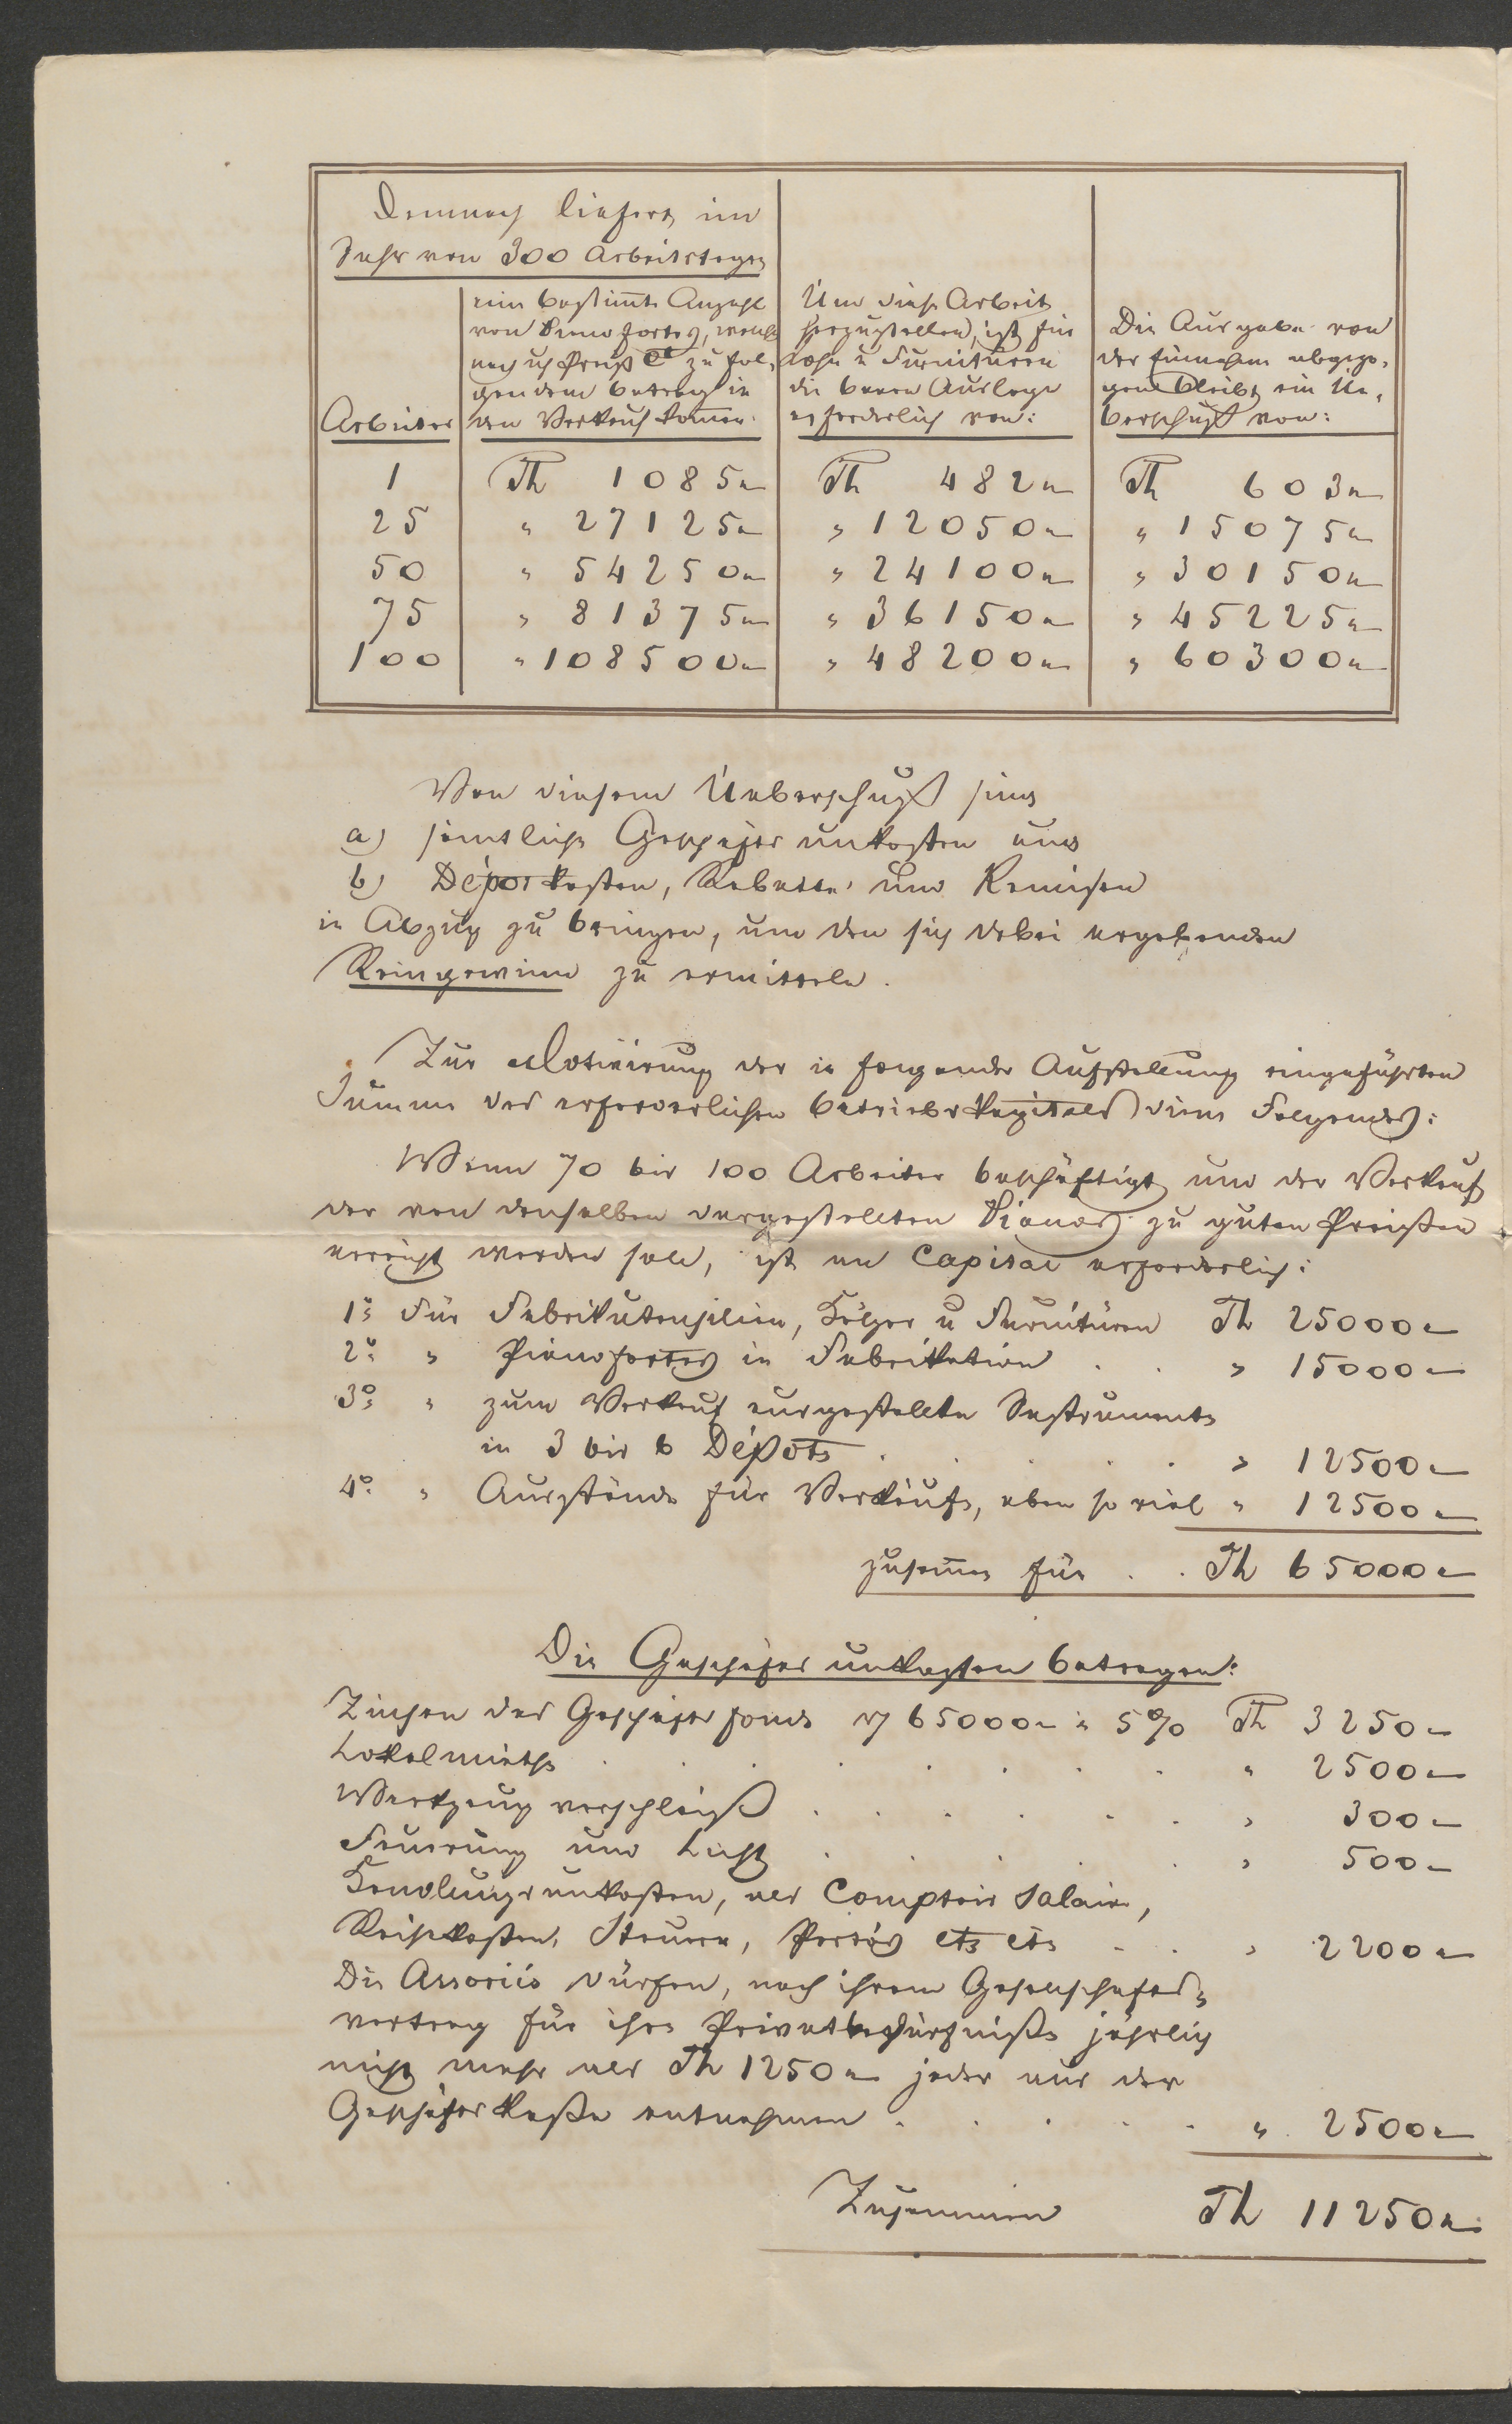 Demnach liefert im
Jahr von 300 Arbeitstagen
Arbeiter
eine bestim̄te Anzahl
von Pianofortes, welche
nach  Preiß Ct zu fol-
gendem Betrag in
den Verkauf kom̄en:
Um diese Arbeit
herzustellen, ist für
Lohn u Furnituren
die baare Auslage
erforderlich von:
Die Ausgabe von
der Einnahme abgezo-
gen bleibt ein Ue-
berschuß von:
1 Th 1085 „— Th 482 „— Th 603 „—
25 „ 27125 „— „ 12050 „— „ 15075 „—
50 „ 54250 „— „ 24100 „— „ 30150 „—
75 „ 81375 „— „ 36150 „— „ 45225 „—
100 „ 108500 „— „ 48200 „— „ 60300 „—
Von diesem Ueberschuß sind
a) sämtliche Geschäfts unkosten und
b) Dépotkosten, Rabatte und Remisen
in Abzug zu bringen, um den sich dabei ergebenden
Reingewinn zu ermitteln.
Zur Motivirung der in folgender Aufstellung eingeführten
Summe des erforderlichen Betriebskapitals diene Folgendes:
Wenn 70 bis 100 Arbeiter beschäftigt und der Verkauf
der von denselben dargestellten Pianos zu guten Preißen
erreicht werden soll, ist an Capital erforderlich:
1º Für Fabrikutensilien, Hölzer u Furnitüren Th 25000 „—
2º „ Pianofortes in Fabrikation . . „ 15000 „—
3º „ zum Verkauf ausgestellte Instrumente
in 3 bis 6 Dépots . . . . . „ 12500 „—
4º „ Ausstände für Verkäufe, eben so viel „ 12500 „—
zusam̄en für . . Th 65000 „—
Die Geschäfts unkosten betragen:
Zinsen des Geschäfts fonds v 65000 „— à 5% Th 3250 „—
Lokalmiethe . . . . . . . „ 2500 „—
Werkzeug verschleiß . . . . . . „ 300 „—
Feuerung und Licht . . . . . „ 500 „—
Handlungsunkosten, als Comptoir Salair,
Reisekosten, Steuern, Portós etc etc . . „ 2200 „—
Die Associés dürfen, nach ihrem Gesellschafts-
vertrag für ihre Privatbedürfniße jährlich
nicht mehr als Th 1250 „— jeder aus der
Geschäfts Kaße entnehmen . . . . . „ 2500 „—
Zusammen Th 11250 „—